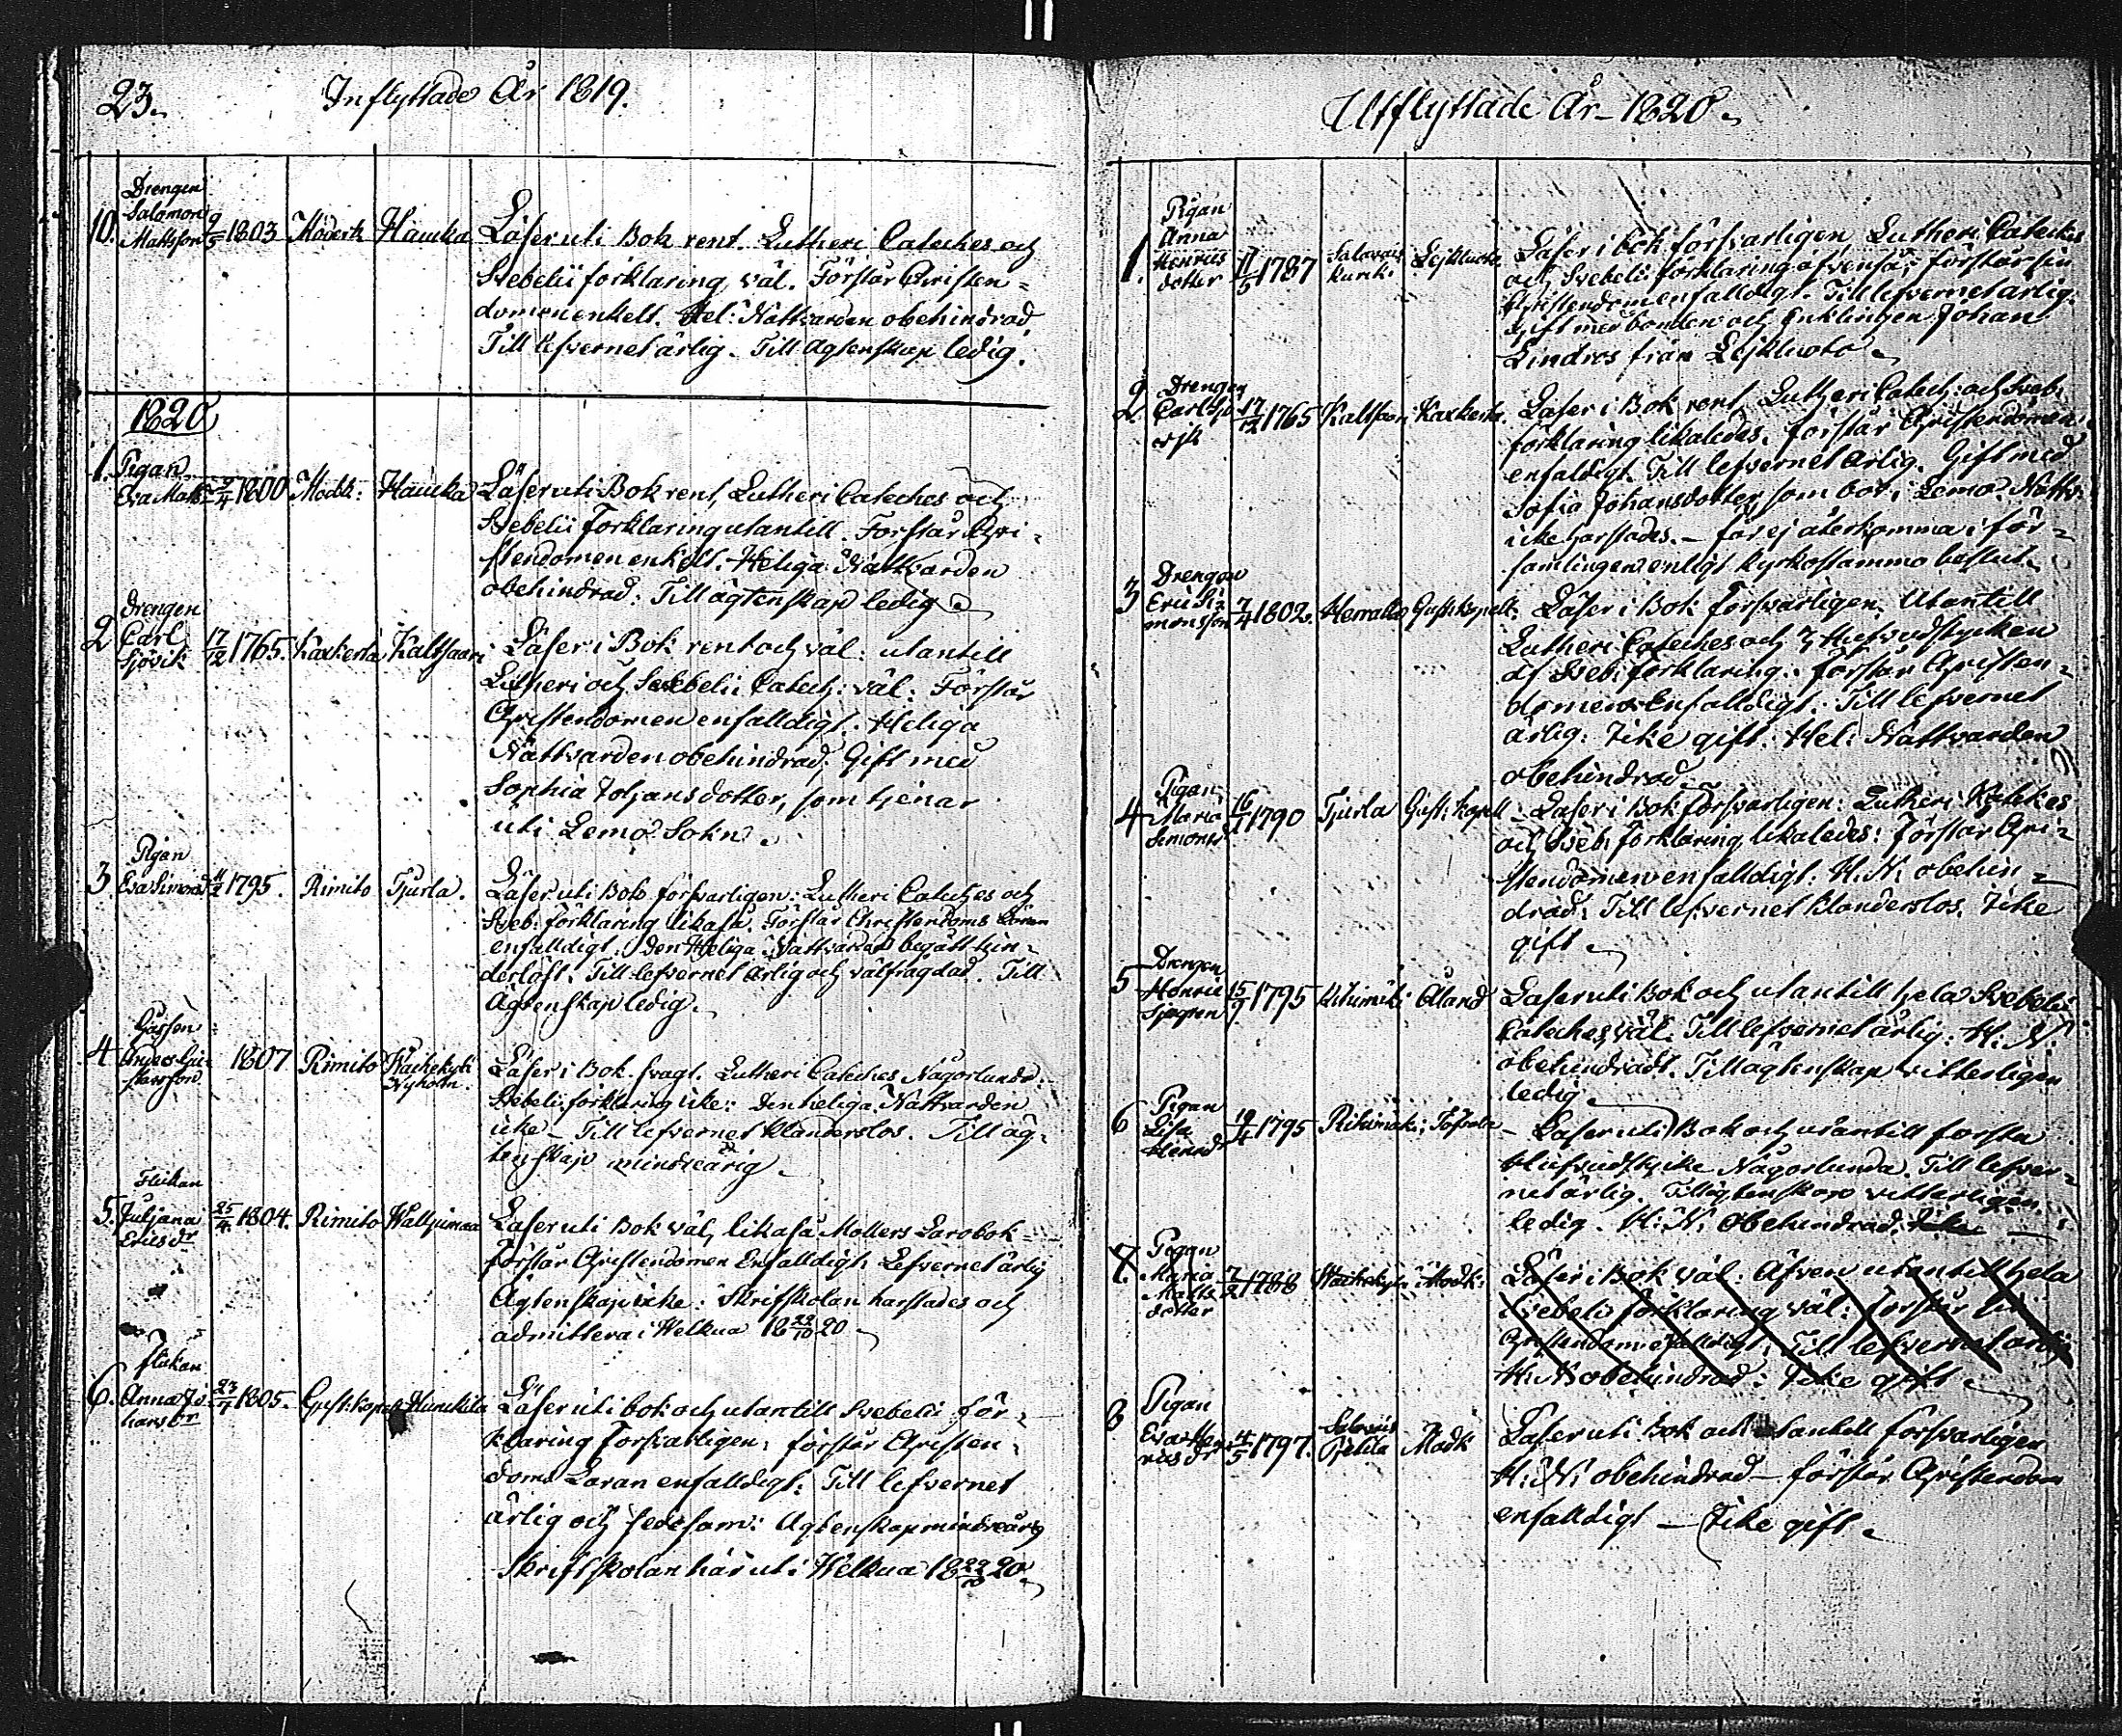 23.
Inflyttade År 1819.
Drengen
Salomon
10. Mattsson 9/5 1803 Mäderk Hauka Läser uti Bok rent. Lutheri Cateches och
Svebelii förklaring, väl. Förstår Christen=
domen enkelt. Hel: Nattvarden obehindrad
Till lefvernet ärlig. Till Ägtenskap ledig.
1820
1. Pigan
Eva Matts 1800 Modk: Hauka Läser uti Bok rent, Lutheri Cateches och
Svebelii Förklaring utantill. Förstår Chri=
stendomen enkelt. Heliga Nattvarden
obehindrad: Till ägtenskap ledig.
Drengen
2 Carl 17/12 1765. Kaxkerta Kaltsaari Läser i Bok rent och väl: utantill
Sjövik
Lutheri och Svebelii Catech: väl. Förstår
Christendomen enfalldigt. Heliga
Nattvarden obehindrad; Gift med
Sophia Johansdotter, som tjenar
uti Lemo Sokn.
Pigan
3 Eva Simonsd 1795. Rimito Tjurla. Läser uti Bok försvarligen: Lutheri Cateches och
Sveb: förklaring likaså. Förstår Christendoms Läran
enfalldigt. Den Heliga Nattvarden begått hin=
derlöst. Till lefvernet ärlig och välfrägdad. Till
Ägtenskap ledig.
Gossen
4 Anders Gu=
stavsson 1807 Rimito Nyholm. Läser i Bok svagt. Lutheri Cateches Någorlunda:
Svebelii förklaring icke: Den heliga Nattvarden
icke - Till lefvernet klanderslös. Till äg=
tenskap mindreårig.
Flickan
5. Juljana 25/4 1804. Rimito Läser uti Bok väl, likaså Mollers Larobok
Ericsdr
förstår Christendomen Enfalldigt: Lefvernet ärlig
Ägtenskap icke: Skrifskolan härstädes och
admittera i Welkua 18 22/10 20
flickan
6. Anna Jo= 23/7 1805. Gust: kapell Läser uti bok och utantill Svebelii för=
hansdr
klaring Försvarligen: förstår Christen=
doms Läran enfalldigt: Till lefvernet
ärlig och sedesam: Ägtenskap mindreårig
Skriftskolan här uti Welkua 18 22/10 20.
Utflyttade År - 1820.
Pigan
Anna
Henrics
1. dotter 11/5 1787 Läser i bok försvarligen, Lutheri Cateches
och Svebelii förklaring äfvenså; förstår sin
Christendom enfalldigt. Till lefvernet ärlig.
Gift med bonden och Enklingen Johan
Lindros från Lejkluoto.
Drengen
2 Carl Sjö=
vik 17/12 1765 Kaltsaari Kaxkerta. Läser i Bok rent, Lutheri Catech: och Sveb:
förklaring likaledes. förstår Christendomen
enfaldigt. Till lefvernet ärlig. Gift med
Sofia Johansdotter, som bor i Lemo. Nattv:
icke härstädes. - får ej återkomma i för=
samlingen enligt kyrkostämmo beslut.
Drengen
3 Eric Si=
monsson 7/4 1802. Gust: kapell: Läser i Bok Försvarligen. Utantill
Lutheri Cateches och 3 Hufvudstycken
af Sveb: förklaring. förstår Christen=
domen Enfalldigt. Till lefvernet
ärlig: Icke gift: Hel: Nattvarden
obehindrad
Pigan
4 Maria
Simonsd 1790 Tjurla Gust: kapell Läser i Bok Försvarligen: Lutheri Katekes
och Sveb: förklaring likaledes: Förstår Chri=
stendomen enfalldigt: H. N: obehin=
drad: Till lefvernet klanderslös. Icke
gift.
Drengen
5 Henric
Sjögren 15/9 1795 Åland Läser uti Bok och utantill hela Svebelii
Cateches, väl. Till lefvernet ärlig: H: N:
obehindradt. Till ägtenskap vitterligen
ledig.
Pigan
6 Lisa
Henrsd 19/4 1795 Läser uti Bok och utantill första
Hufvudstycke Någorlunda. Till lefver=
net ärlig. Till ägtenskap vitterligen
ledig. H: N: obehindrad. Icke
Pigan
7. Maria
Matts
dotter 7/2 1788 Modk: Läser i Bok väl: Äfven utantill hela
Svebelii förklaring väl: förstår sin
Christendom enfalldigt. Till lefvernet ärlig
H: N obehindrad: Icke gift
Pigan
8 Eva Hen=
ricsdr 4/5 1797. Modk Läser uti Bok och utantill försvarligen
H: N: obehindrad - förstår Christendom
enfalldigt - Icke gift.